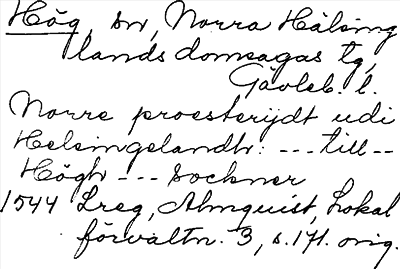 Hög, sn, Norra Hälsing
landsdomsagas tg,
Gävleb. l.
Norre proesterijdt udi
Helsingelandh: --- till --
Högh --- Sockner
1544 Lreg, Almquist, Lokal
förvaltn. 3, s. 171. orig.